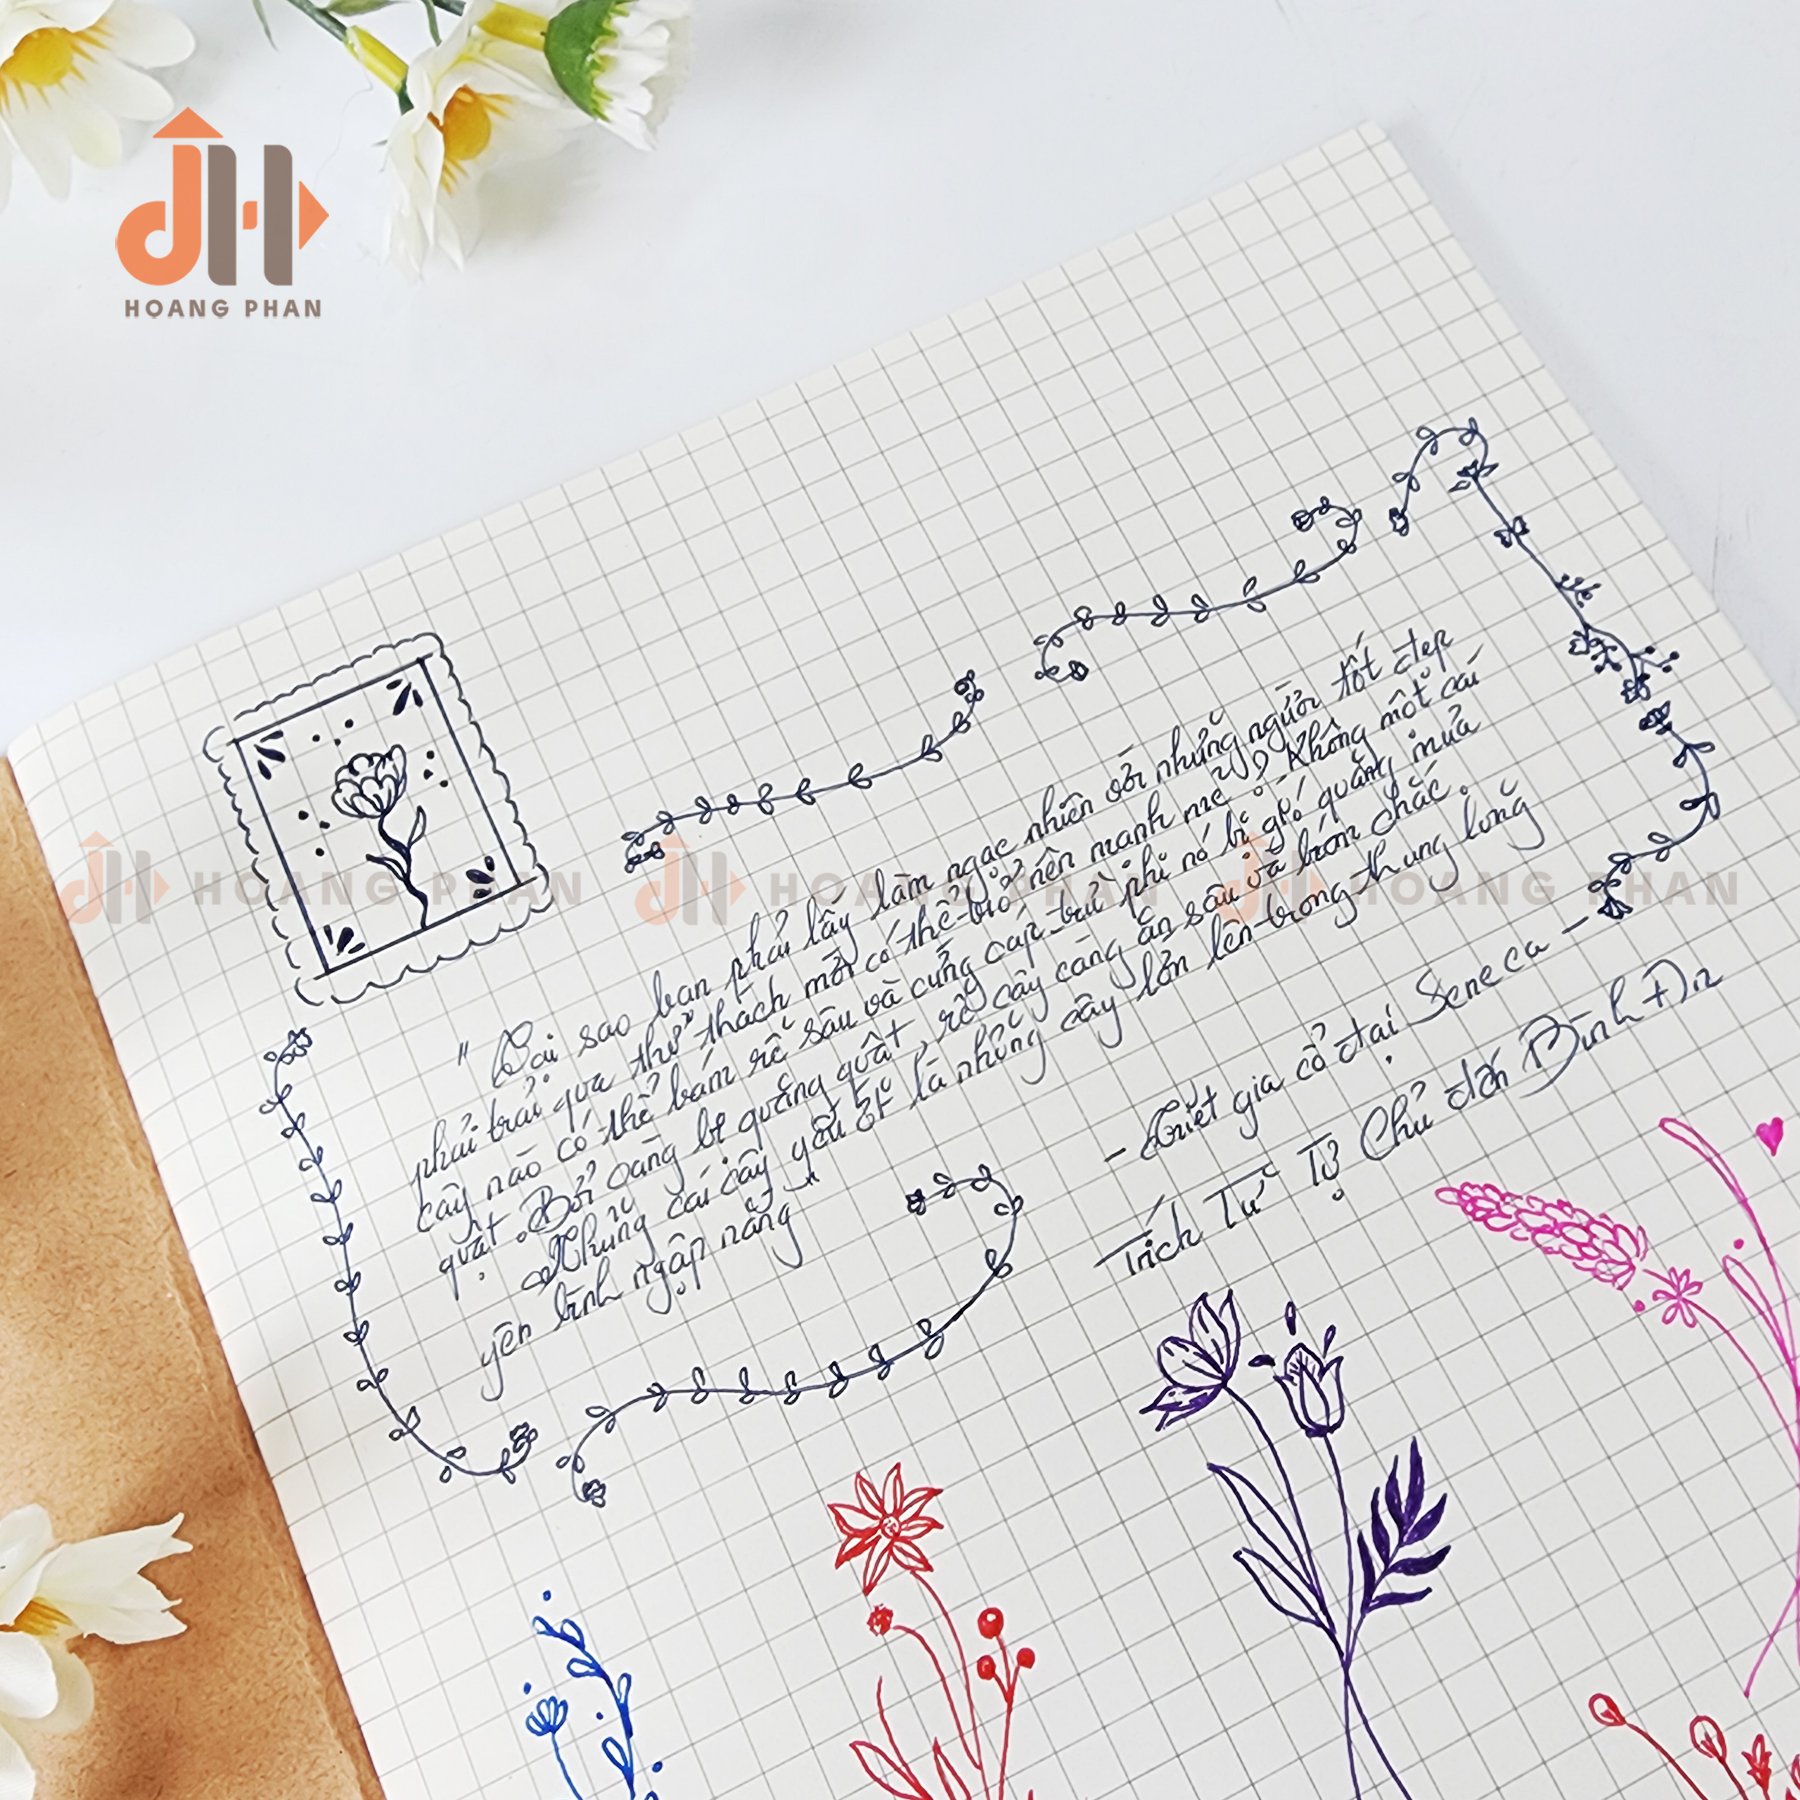 HOANG PHAN
HOANG PHAN HOANG PHAN HOANG PHAN
" Tại sao bạn phải lấy làm ngạc nhiên với những người tốt đẹp
phải trải qua thử thách mới có thể trở nên mạnh mẽ? Không một cái
cây nào có thể bám rễ sâu và cứng cáp trừ phi nó bị gió quăng mưa
quật. Bởi càng bị quăng quật, rễ cây càng ăn sâu và bám chắc.
Những cái cây yếu ớt là những cây lớn lên trong thung lũng
yên bình ngập nắng"
- Triết gia cổ đại Seneca -
Trích Từ Tự Chủ đến Bình